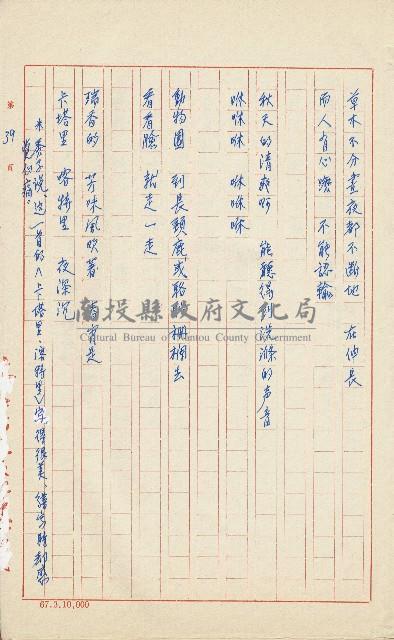 草木不分晝夜都不斷地　在伸長
而人有心喲　不能認輸
秋天的清爽呵　能聽得到洗滌的声音
咻咻咻　咻咻咻
動物園　到長頸鹿或駱　柵欄去
看看臉　就走一走
瑞香的　芳味風吹著　宵是
卡塔里　喀特里　夜深沉
米養子說、這一首的＜卡塔里、喀特里＞寫得很美、
第 39 頁
南投縣政府文化局
Cultural Bureau of Nantou County Government
67.3.10,000